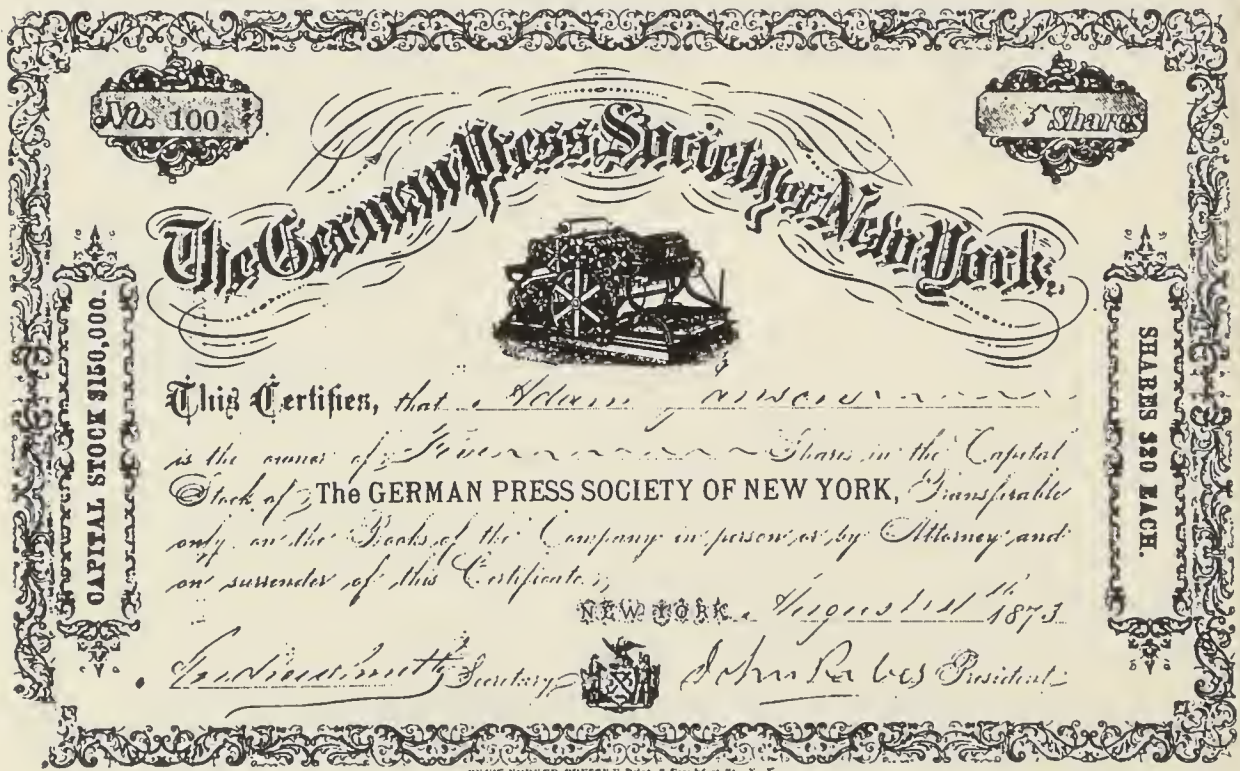 No. 100
5 Shares
The German Press Society of New York.
CAPITAL STOCK $150,000.
This Certifies, that Adam
is the owner of Five Shares in the Capital
Stock of The GERMAN PRESS SOCIETY OF NEW YORK, Transferable
only on the Books of the Company in person or by Attorney and
on surrender of this Certificate.
NEW YORK, August th 1873
Secretary John President
SHARES $20 EACH.